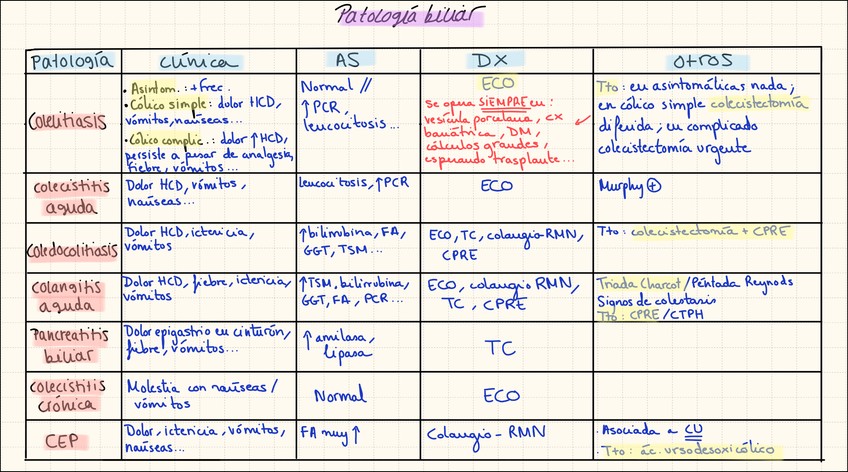 Patología biliar
Patología clínica AS DX otros
Colelitiasis
· Asintom.: +frec.
· Cólico simple: dolor HCD,
vómitos, nauseas...
· Cólico complic.: dolor ↑HCD,
persiste a pesar de analgesia,
fiebre, vómitos...
Normal //
↑PCR,
leucocitosis...
ECO
Se opera SIEMPRE en:
vesícula porcelana, cx
bariátrica, DM,
cálculos grandes,
esperando trasplante...
Tto: en asintomáticas nada;
en cólico simple colecistectomía
diferida; en complicado
colecistectomía urgente
colecistitis
aguda
Dolor HCD, vómitos,
naúseas...
leucocitosis, ↑PCR
ECO
Murphy ⊕
Coledocolitiasis
Dolor HCD, ictericia,
vómitos
↑bilirrubina, FA,
GGT, TSM...
ECO, TC, colangio-RMN,
CPRE
Tto: colecistectomía + CPRE
colangitis
aguda
Dolor HCD, fiebre, ictericia,
vómitos
↑TSM, bilirrubina,
GGT, FA, PCR...
ECO, colangio RMN,
TC, CPRE
Triada Charcot/Péntada Reynods
Signos de colestasis
Tto: CPRE/CTPH
Pancreatitis
biliar
Dolor epigastrio en cinturón,
fiebre, vómitos...
↑amilasa,
lipasa
TC
colecistitis
crónica
Molestia con naúseas/
vómitos
Normal
ECO
CEP
Dolor, ictericia, vómitos,
naúseas...
FA muy ↑
Colangio-RMN
· Asociada a CU
· Tto: ác. ursodesoxicólico